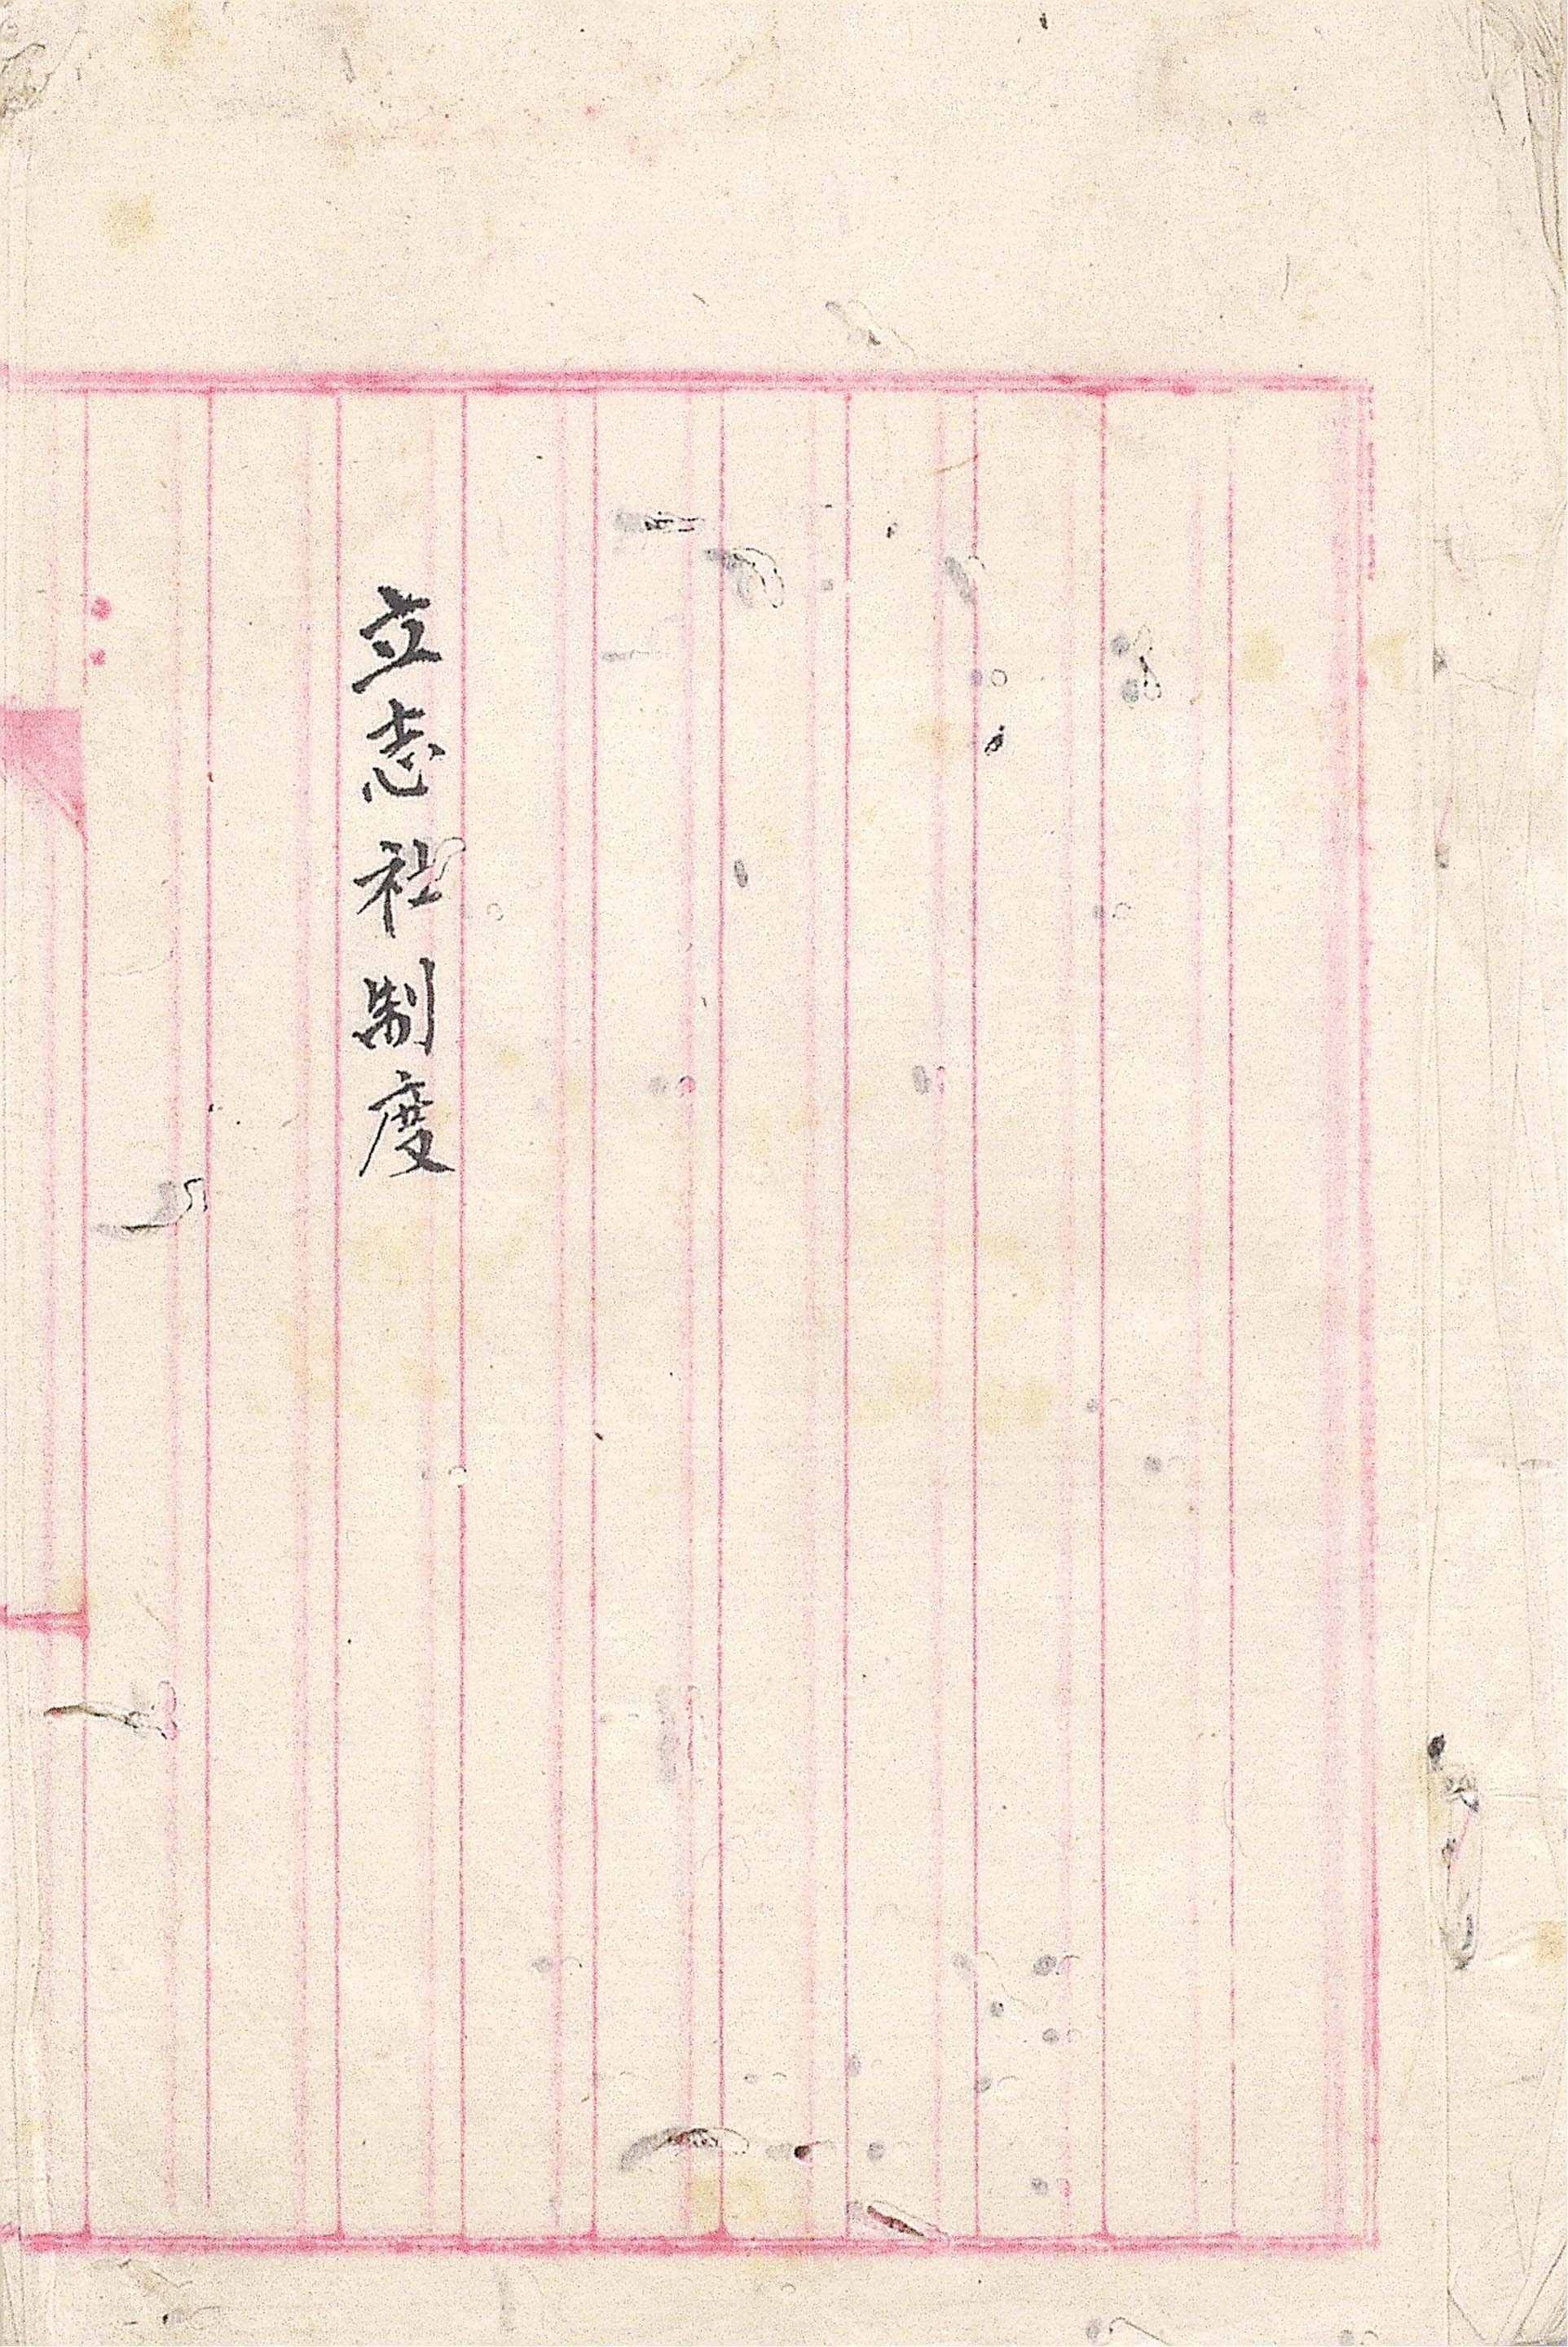 立志社制度